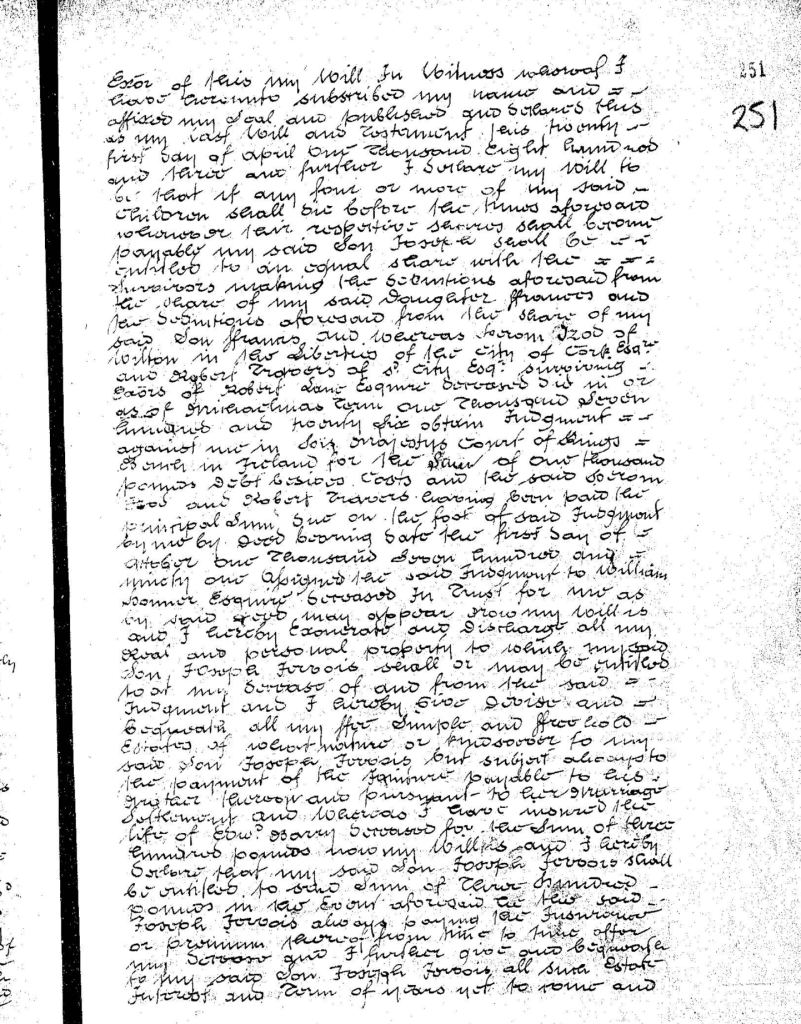 251
251
Exor of this my Will In Witness whereof I
have hereunto subscribed my name and = =
affixed my Seal and published and declared this
as my last Will and Testament this twenty –
first day of april One Thousand Eight hundred
and three and further I declare my Will to
be that if any four or more of my said –
Children shall die before the times aforesaid
whenever their respective shares shall become
payable my said Son Joseph shall be – –
entitled to an equal share with the = = =
Survivors making the deductions aforesaid from
the share of my said Daughter ffrances and
the deductions aforesaid from the share of my
said Son ffrancis and whereas Izod of
Wilton in the Liberties of the City of Cork Esqr.
and Robert Travers of sd. City Esqr. surviving –
Exors of Robert Lane Esquire deceased did in or
as of Michaelmas Term One Thousand Seven
hundred and twenty six obtain Judgment = =
against me in his Majestys Court of Kings =
Bench in Ireland for the Sum of One thousand
pounds Debt besides Costs and the said
Izod and Robert Travers having been paid the
principal Sum due on the foot of said Judgment
by me by Deed bearing date the first day of –
October One Thousand Seven hundred and –
ninety one Assigned the said Judgment to William
Esquire deceased In Trust for me as
by said Deed may appear Now my Will is
and I hereby Exonerate and Discharge all my
Real and personal property to which my said
Son Joseph Jervois shall or may be entitled
to at my decease of and from the said = =
Judgment and I hereby Give Devise and =
Bequeath all my ffee Simple and ffreehold –
Estates of what nature or kindsoever to my
said Son Joseph Jervois but subject always to
the payment of the Jointure payable to his
Mother thereon and pursuant to her Marriage
Settlement and Whereas I have insured the
life of Edwd. Barry deceased for the Sum of three
hundred pounds now my Will is and I hereby
declare that my said Son Joseph Jervois shall
be entitled to said Sum of Three Hundred –
pounds in the Event aforesaid he the said –
Joseph Jervois always paying the Insurance
or premium thereof from time to time after
my decease and I further give and bequeath
to my said Son Joseph Jervois all such Estate
Interest and Term of years yet to come and